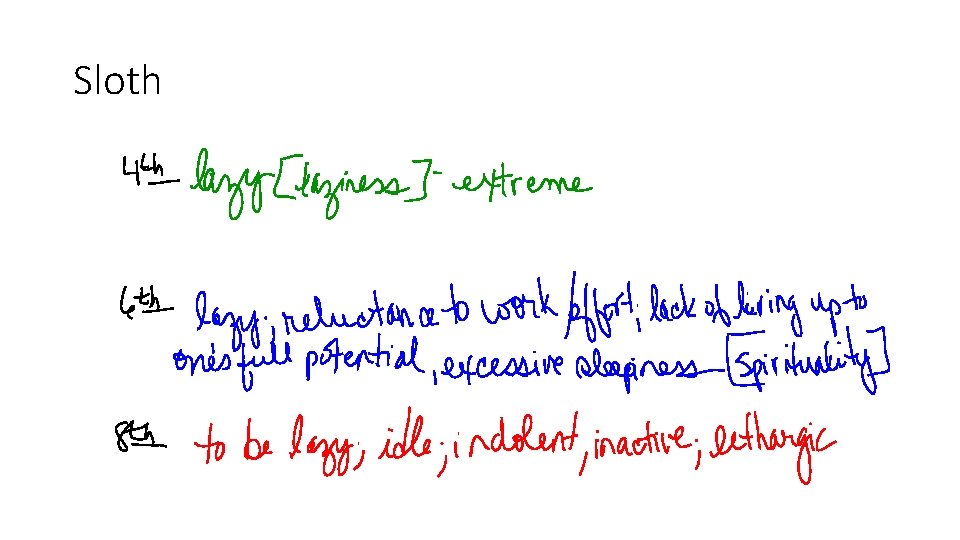 Sloth
4th lazy [laziness] - extreme
6th lazy; reluctance to work/effort; lack of living up to
one's full potential, excessive sleepiness [Spirituality]
8th to be lazy; idle; indolent, inactive; lethargic